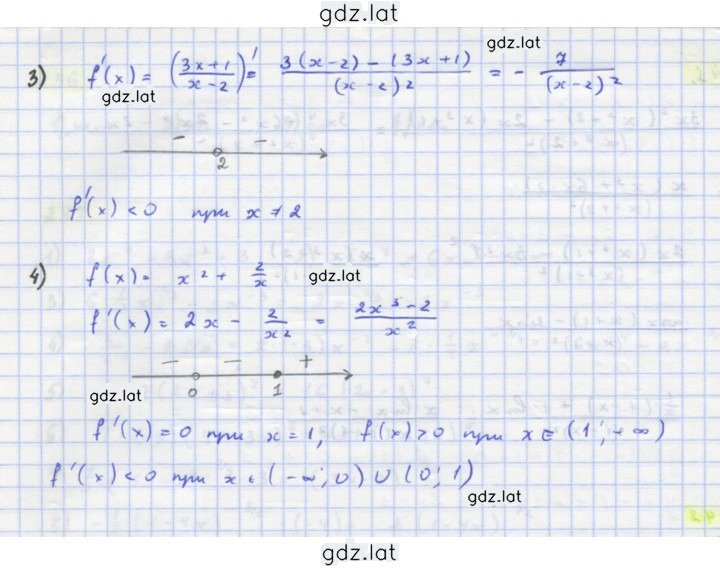 gdz.lat
gdz.lat
3) f'(x) = (3x+1/x-2)' = 3(x-2) - (3x+1)/(x-2)² = - 7/(x-2)²
gdz.lat
- -
2
f'(x) < 0 при x ≠ 2
4) f(x) = x² + 2/x gdz.lat
f'(x) = 2x - 2/x² = 2x³-2/x²
- - +
0 1
gdz.lat
f'(x) = 0 при x = 1, f(x) > 0 при x ∈ (1; +∞)
f'(x) < 0 при x ∈ (-∞; 0) ∪ (0; 1)
gdz.lat
gdz.lat